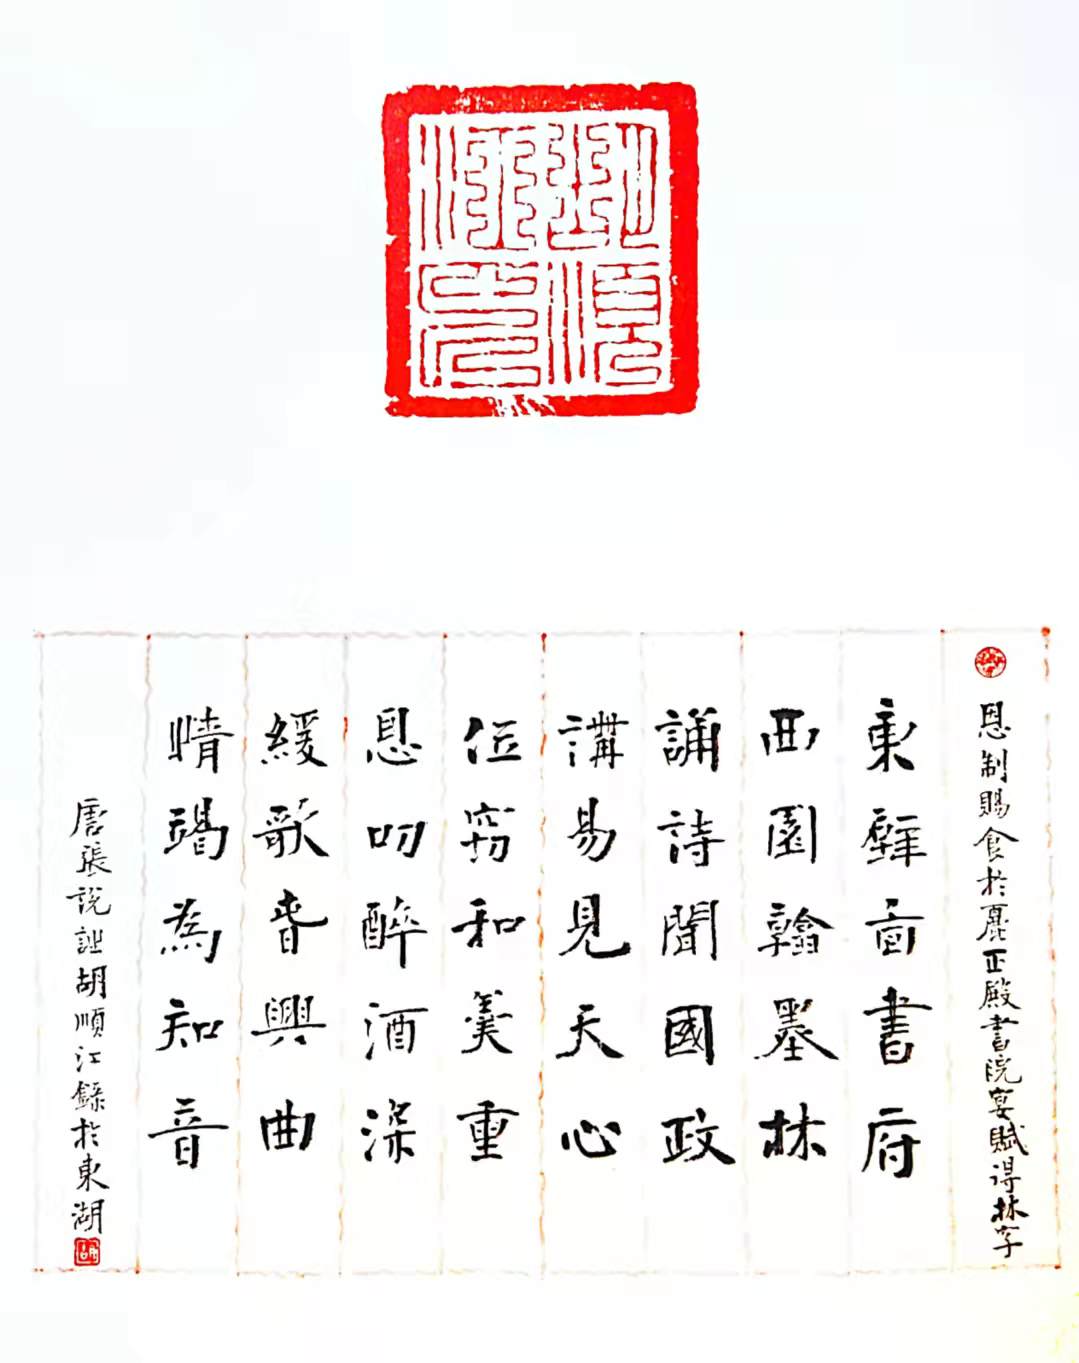 恩制賜食於麗正殿書院宴賦得林字
東壁圖書府
西園翰墨林
誦詩聞國政
講易見天心
位竊和羹重
恩叨醉酒深
緩歌春興曲
情竭為知音
唐張說詩胡順江錄於東湖